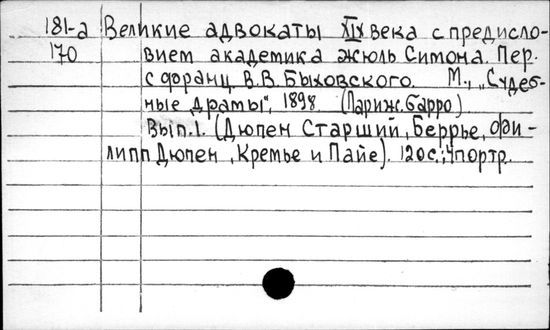 181-а Великие адвокаты XIX века с предисло-
170 вием академика Жюль Симона. Пер.
с франц. В.В. Быховского. М., „Судеб-
ные драмы", 1898. (Париж. барро)
Вып.1. (Дюпен Старший, Беррье, Фи-
липп Дюпен, Кремье и Пайе). 120с.; 4портр.